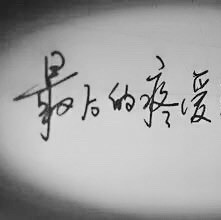 最后的疼爱